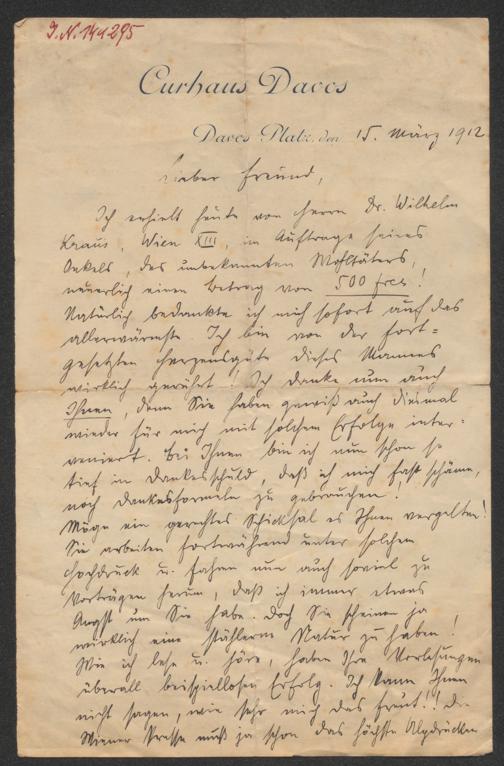 J.N. 144295
Curhaus Davos
Davos Platz, den 15. März 1912
Lieber Freund,
Ich erhielt heute von Herrn Dr. Wilhelm
Kraus, Wien XIII, im Auftrage seines
Onkels, des unbekannten Wohltäters,
neuerlich einen Betrag von 500 frcs!
Natürlich bedankte ich mich sofort auf das
allerwärmste. Ich bin von der fort=
gesetzten Herzensgüte dieses Mannes
wirklich gerührt! Ich danke nun auch
Ihnen, denn Sie haben gewiß auch diesmal
wieder für mich mit solchem Erfolge inter=
veniert. Bei Ihnen bin ich nun schon so
tief in Dankesschuld, daß ich mich fast schäme,
noch Dankesformeln zu gebrauchen!
Möge ein gerechtes Schicksal es Ihnen vergelten!
Sie arbeiten fortwährend unter solchem
Hochdruck u. fahren nun auch soviel zu
Vorträgen herum, daß ich immer etwas
Angst um Sie habe. Doch Sie scheinen ja
wirklich eine stählerne Natur zu haben!
Wie ich lese u. höre, haben Ihre Vorlesungen
überall beispiellosen Erfolg. Ich kann Ihnen
nicht sagen, wie sehr mich das freut!! Die
Wiener Presse muß ja schon das höchste Alpdrücken